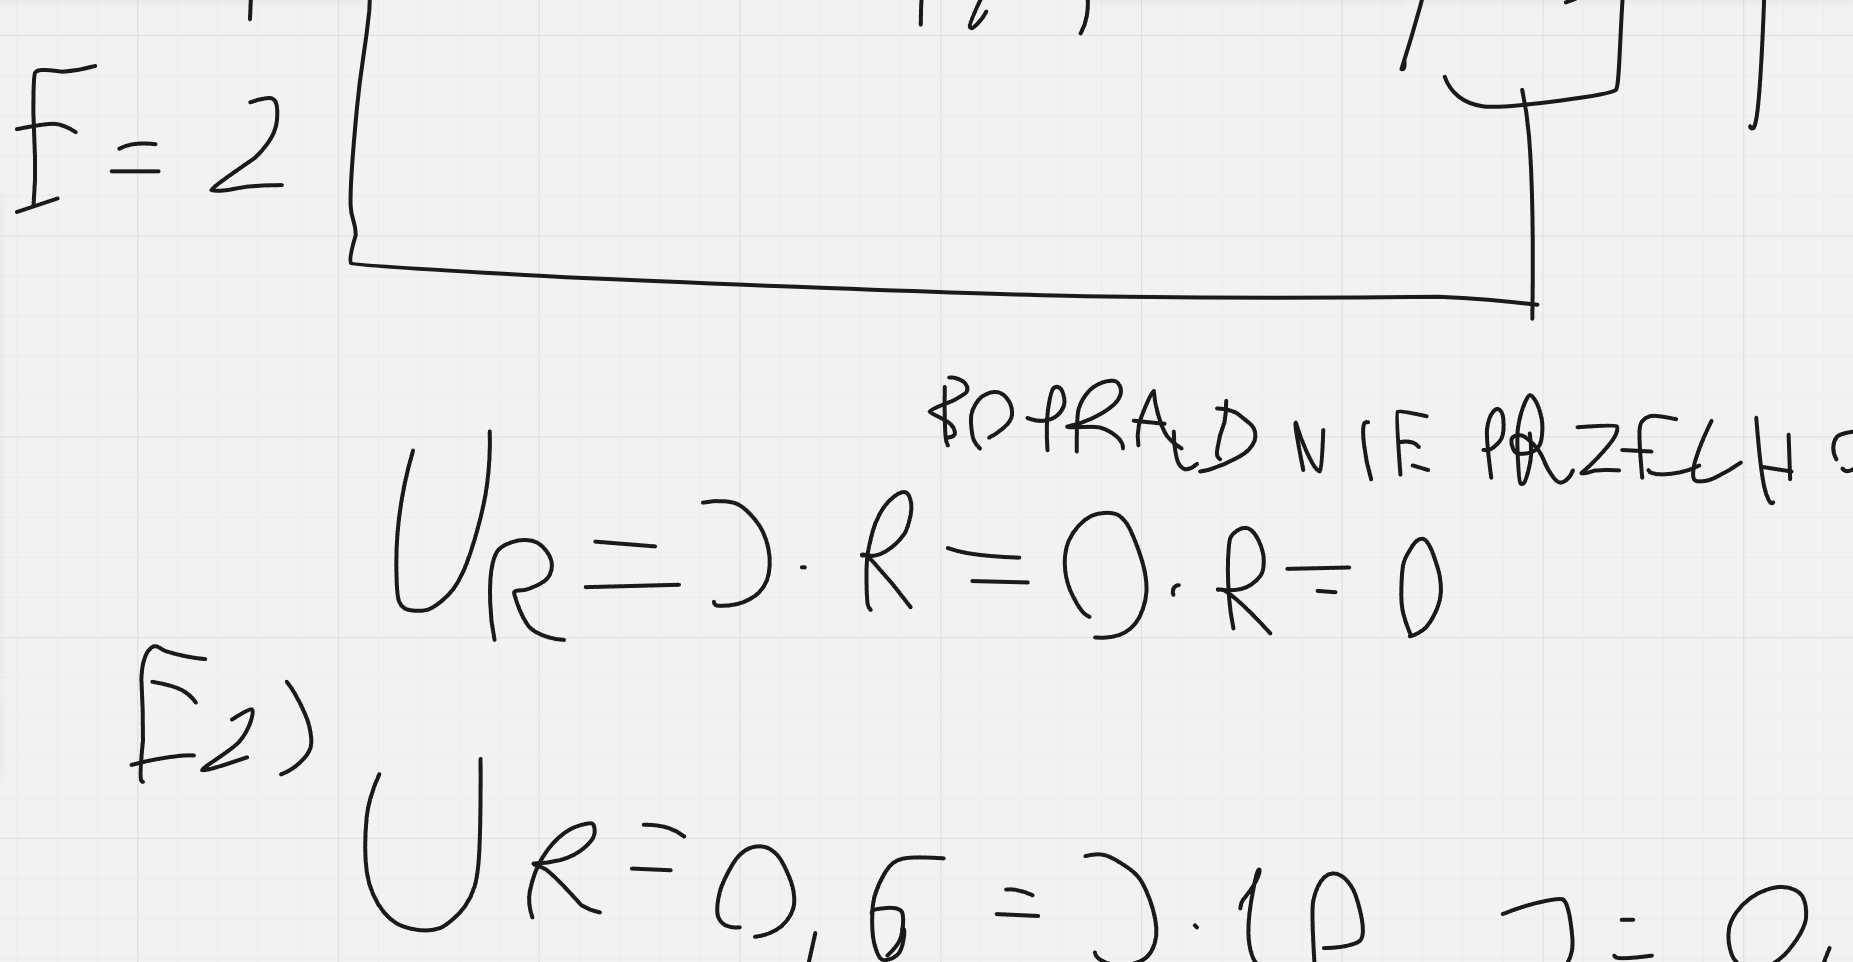 F = 2
BO PRAD NIE PRZECHO
U_R = J · R = 0 · R = 0
F2)
U_R = 0,6 = J · 10 J = 0,